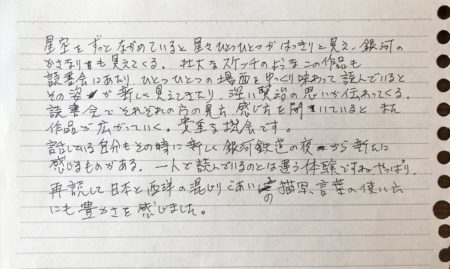 星空をずっとながめていると星々ひとつひとつがはっきりと見え、銀河の
かさなりも見えてくる。壮大なスケッチのようなこの作品も
読書会にあたり ひとつひとつの場面をゆっくり味わって読んでいると
その姿が新しく見えてきたり、深い賢治の思いが伝わってくる。
読書会でそれぞれの方の見方、感じ方を聞いていると また
作品が広がっていく。貴重な機会です。
話している自分もその時に新しく銀河鉄道の夜から新たに
感じるものがある。一人で読んでいるのとは違う体験ですね、やっぱり。
再読して日本と西洋の混じりぐあいの描写、言葉の使い方
にも豊かさを感じました。